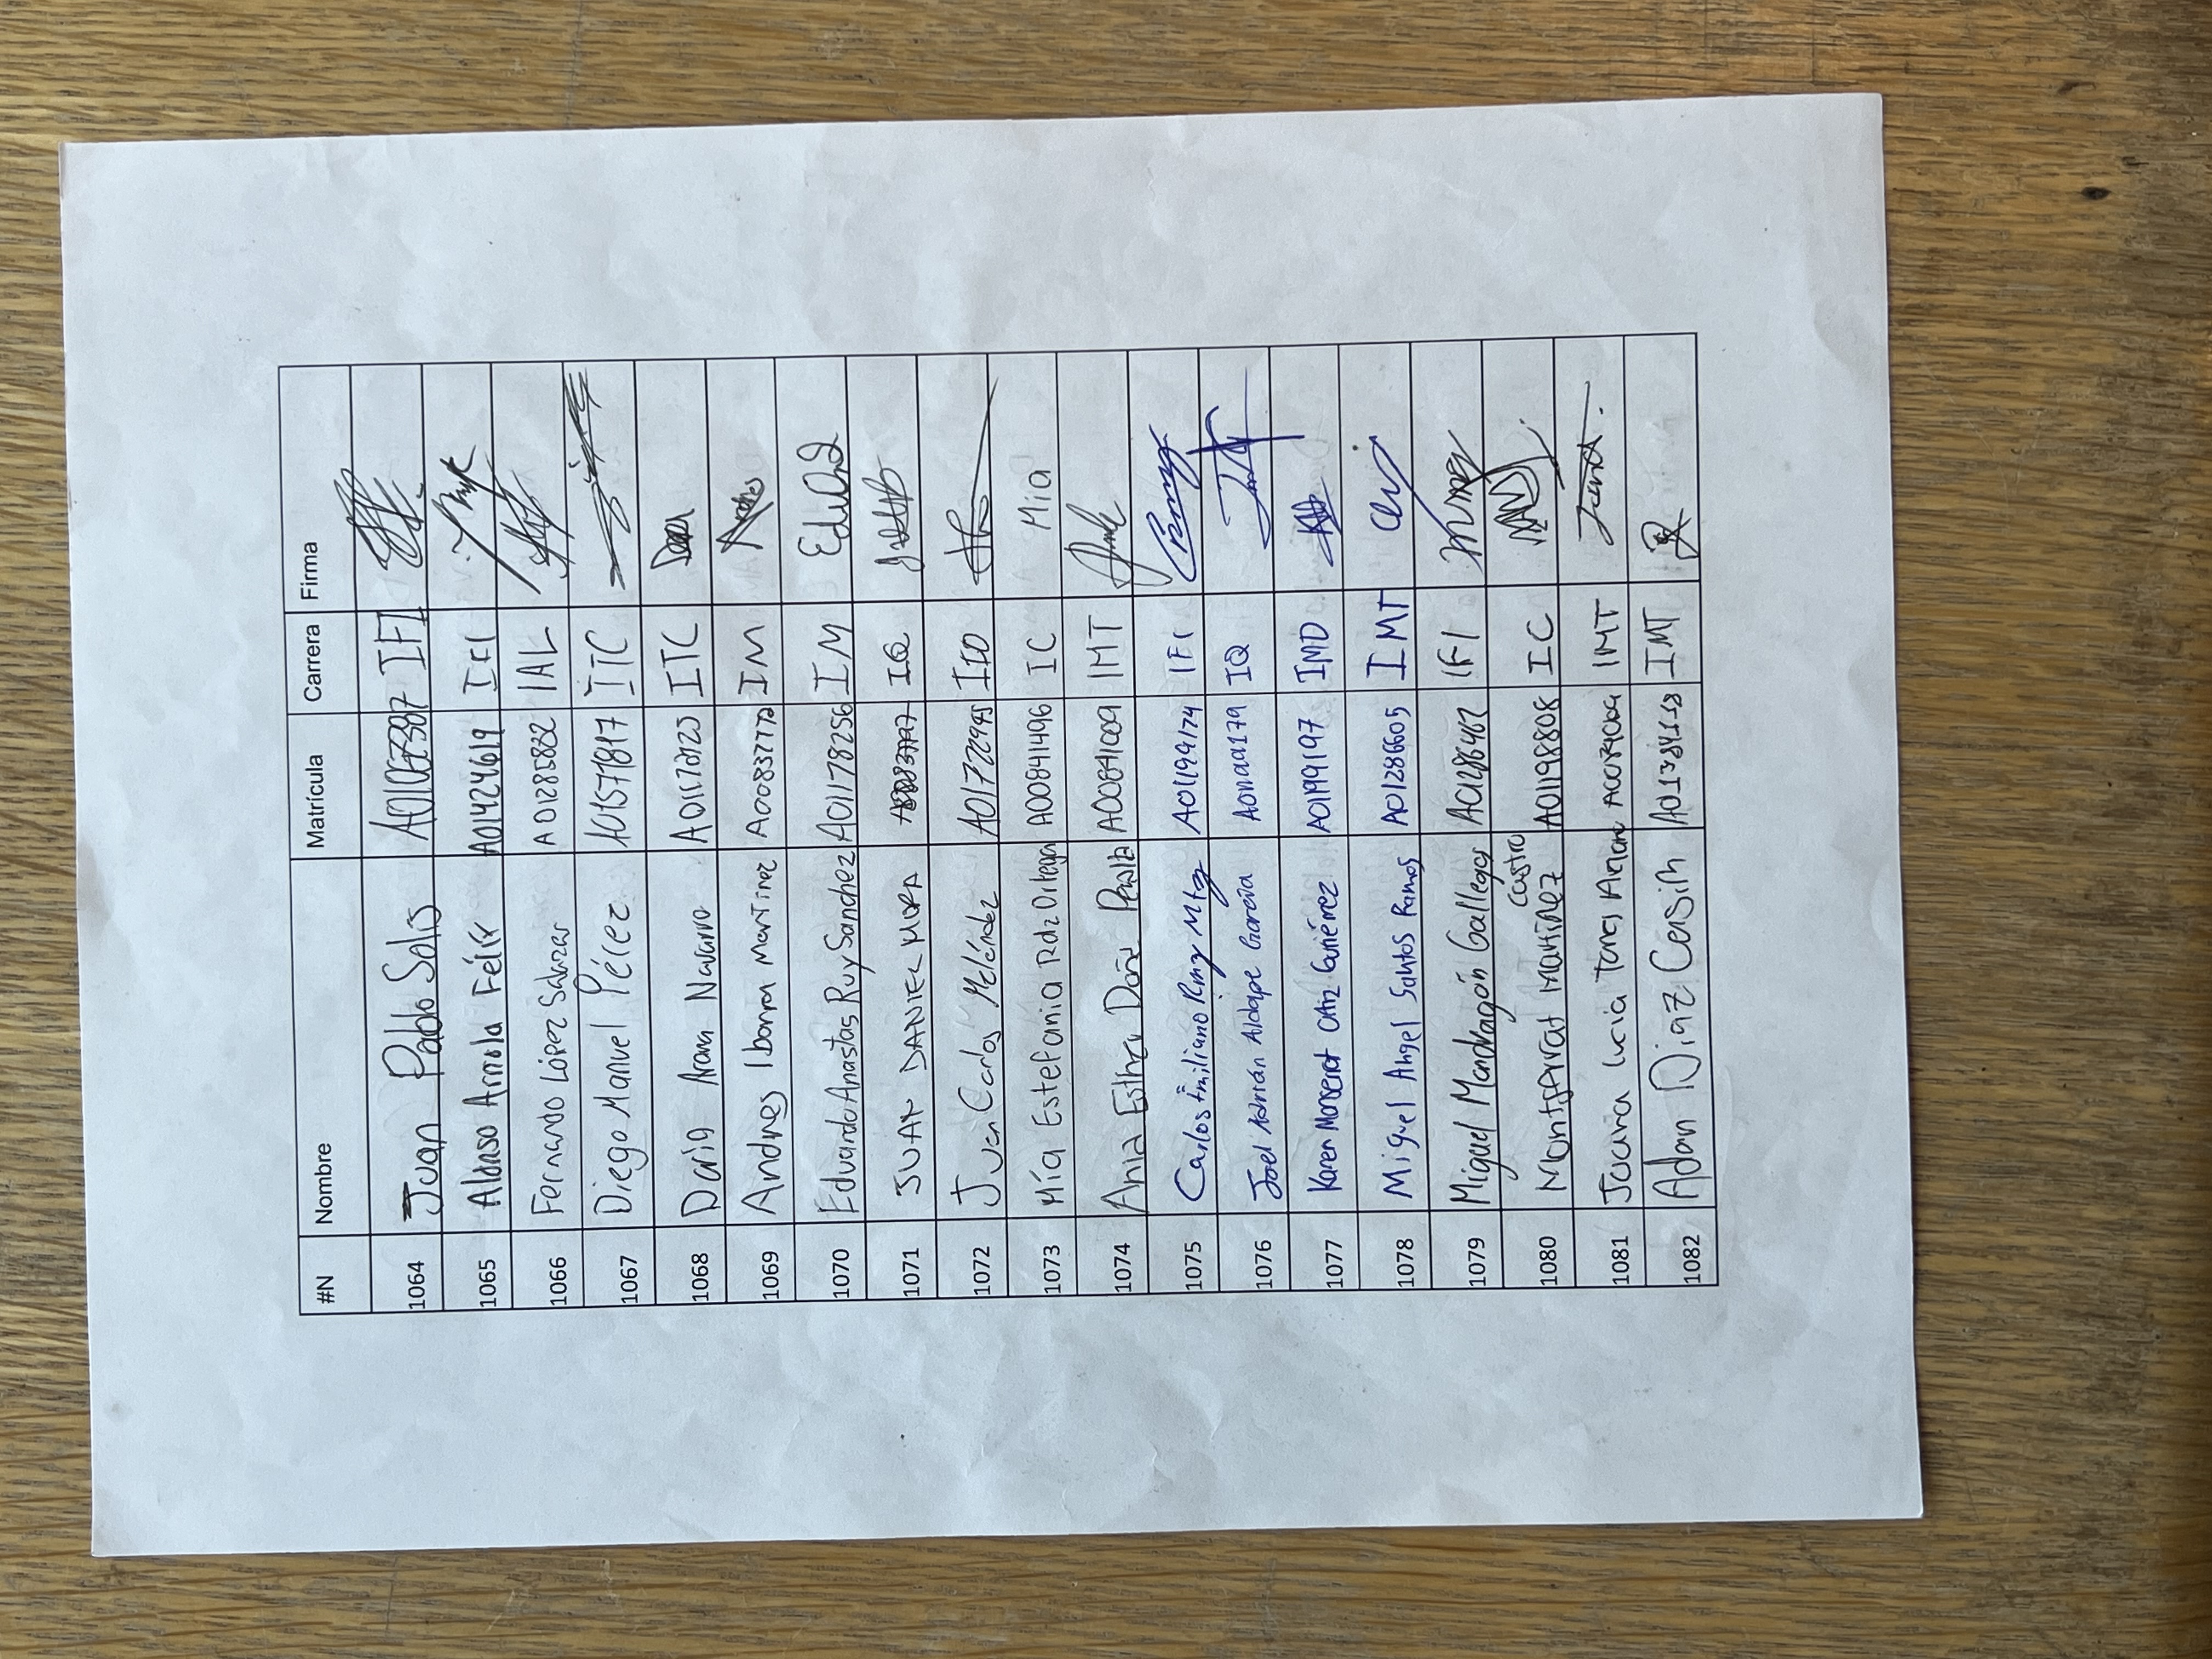 #N Nombre Matrícula Carrera Firma
1064 Juan Pablo Solis A01067387 IFI
1065 Alonso Arriola Félix A01424619 IFI
1066 Fernando López Salazar A01285832 IAL
1067 Diego Manuel Pérez A01571817 ITC
1068 Dario Arana Navarro ITC
1069 Andres Ibarra Martinez IM Andres
1070 Eduardo Anastas Ruy Sanchez A01178256 IM
1071 JUAN DANIEL MORA IQ
1072 Juan Carlos Meléndez A01722945
1073 Mía Estefania Rdz Ortega A00841496 IC Mia
1074 Ania Esther A00841009 IMT
1075 Carlos Emiliano Rmz Mtz A01199174 IFI
1076 Joel Adrián Aldape García IQ
1077 Karen Monserrat Ortiz Gutiérrez A01199197 IMD
1078 Miguel Angel Santos Ramos A01286605 IMT
1079 Miguel Mondragón Gallegos A01286462 IFI
castro
1080 Montserrat Martínez A01198808 IC
1081 Joana Lucia Torres IMT
1082 Adan Diaz A01384118 IMT